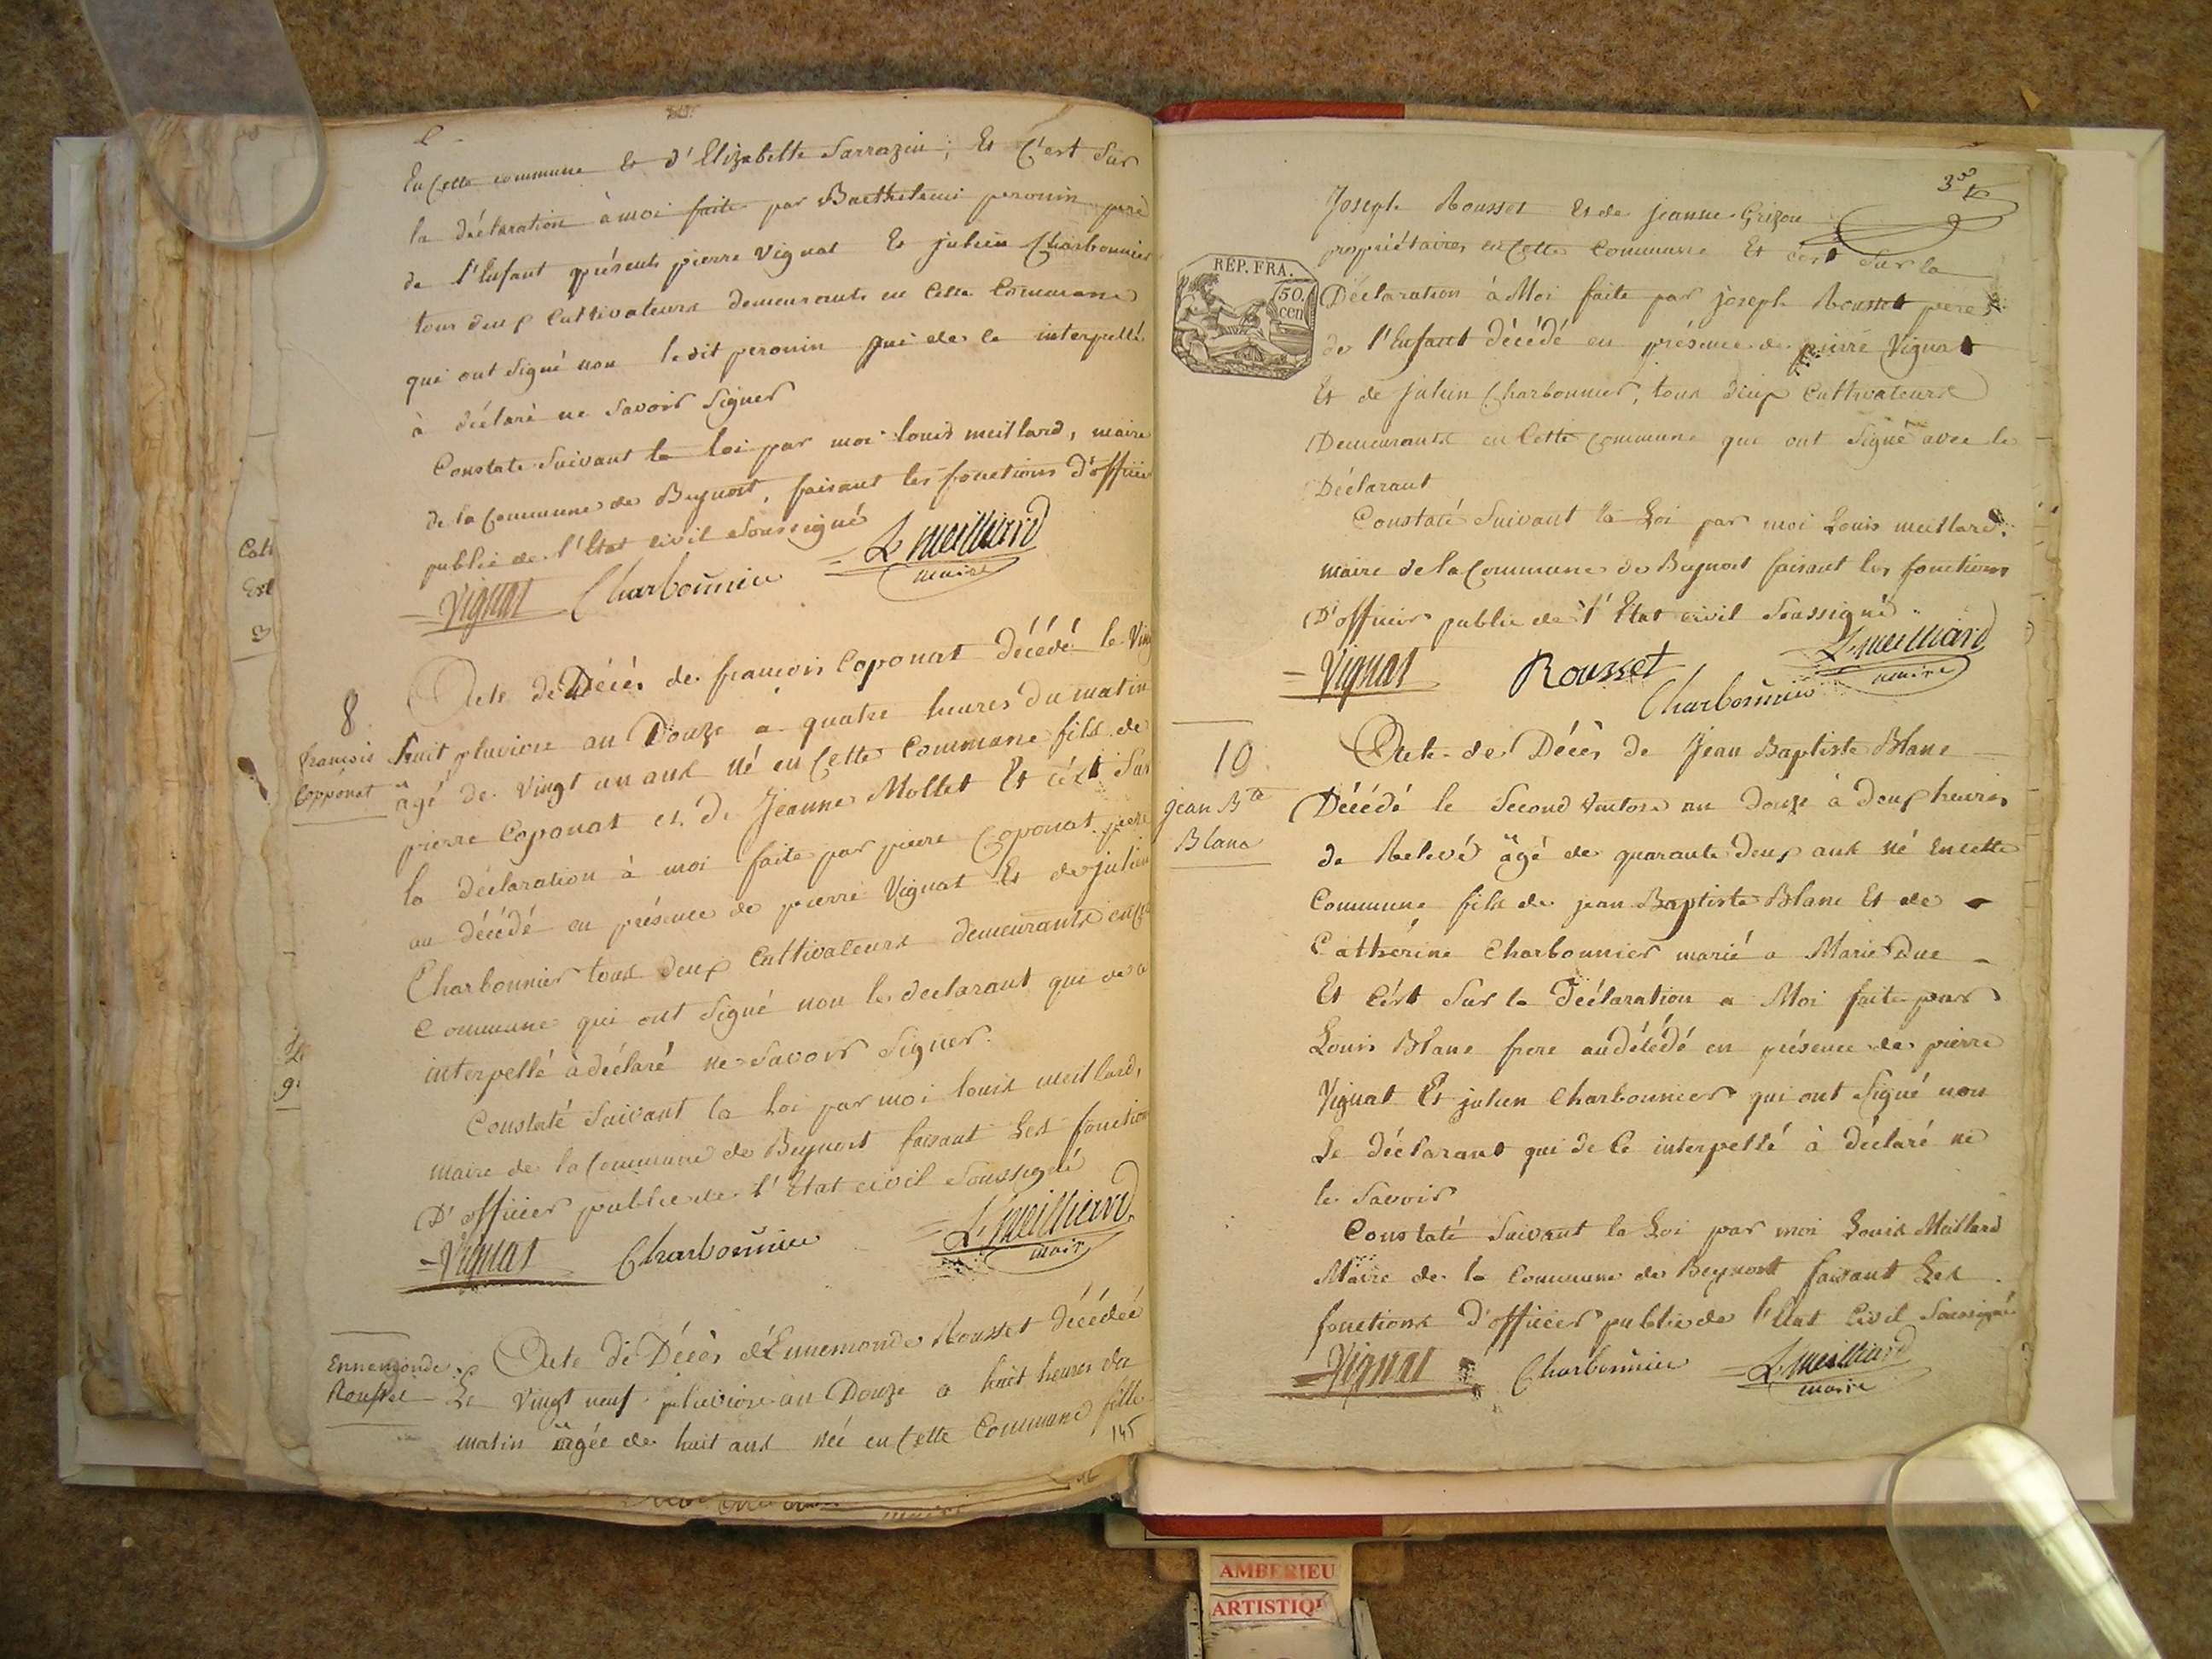 En Cette commune Et d'Elizabette Sarrazin; Et C'est Sur
la déclaration à moi faite par Barthelemi peronin pere
de l'Enfant présents pierre Vignat Et julien Charbonnier
tous deux Cultivateurs demeurants en Cette Commune
qui ont signé non ledit peronin qui de ce interpellé
à déclaré ne Savoir Signer
Constate Suivant la loi par moi louis meillard, maire
de la Commune de Beynost, faisant les fonctions d'officier
public de l'Etat civil Soussigné
Vignat Charbonnier L. meilliard
maire
8
francois
Copponat
Acte de Décès de francois Coponat Décédé le Vingt
huit pluviose an Douze a quatre heures du matin
âgé de Vingt un ans Né en Cette Commune fils de
pierre Coponat et de Jeanne Mollet Et cést Sur
la déclaration à moi faite par pierre Coponat pere
au décédé en présence de pierre Vignat Et de julien
Charbonnier tous deux Cultivateurs demeurants en Cette
Commune qui ont Signé non le declarant qui de ce
interpellé à déclaré ne Savoir Signer.
Constaté Suivant la Loi par moi louis meillard,
maire de la Commune de Beynost faisant Les fonctions
D'officier public de l'Etat civil Soussigné
Vignat Charbonnier L. meilliard
maire
Ennemonde
Rousset
Acte de Décès d'Ennemonde Rousset décédée
Le Vingt neuf pluviose an Douze a huit heures du
matin âgée de huit ans Née en Cette Commune fille
145
3
Joseph Rousset Et de jeanne Grizon
propriétaires en Cette Commune Et cést Sur la
REP. FRA.
50.
cen
Déclaration à Moi faite par joseph Rousset pere
de l'Enfant Décédé en présence de pierre Vignat
Et de Julien Charbonnier, tous deux Cultivateurs
Demeurants en Cette Commune qui ont Signé avec le
Déclarant
Constaté Suivant la Loi par moi Louis meillard.
maire de la Commune de Beynost faisant les fonctions
D'officier public de l'Etat civil Soussigné
Vignat Rousset L. meilliard
Charbonnier maire
10
jean Bte
Blanc
Acte de Décès de Jean Baptiste Blanc
Décédé le Second Ventose an douze à deux heures
de Relevé âgé de quarante deux ans Né En cette
Commune fils de jean Baptiste Blanc Et de
Cathérine Charbonnier marié a Marie Duc
Et cést Sur la Déclaration a Moi faite par
Louis Blanc frere au décédé en présence de pierre
Vignat Et julien Charbonnier qui ont Signé non
Le déclarant qui de Ce interpellé à déclaré ne
le Savoir
Constaté Suivant la Loi par moi Louis Meillard
Maire de la Commune de Beynost faisant Les
fonctions D'officier public de l'Etat Civil Soussigné
Vignat Charbonnier L. meilliard
maire
AMBERIEU
ARTISTIQU